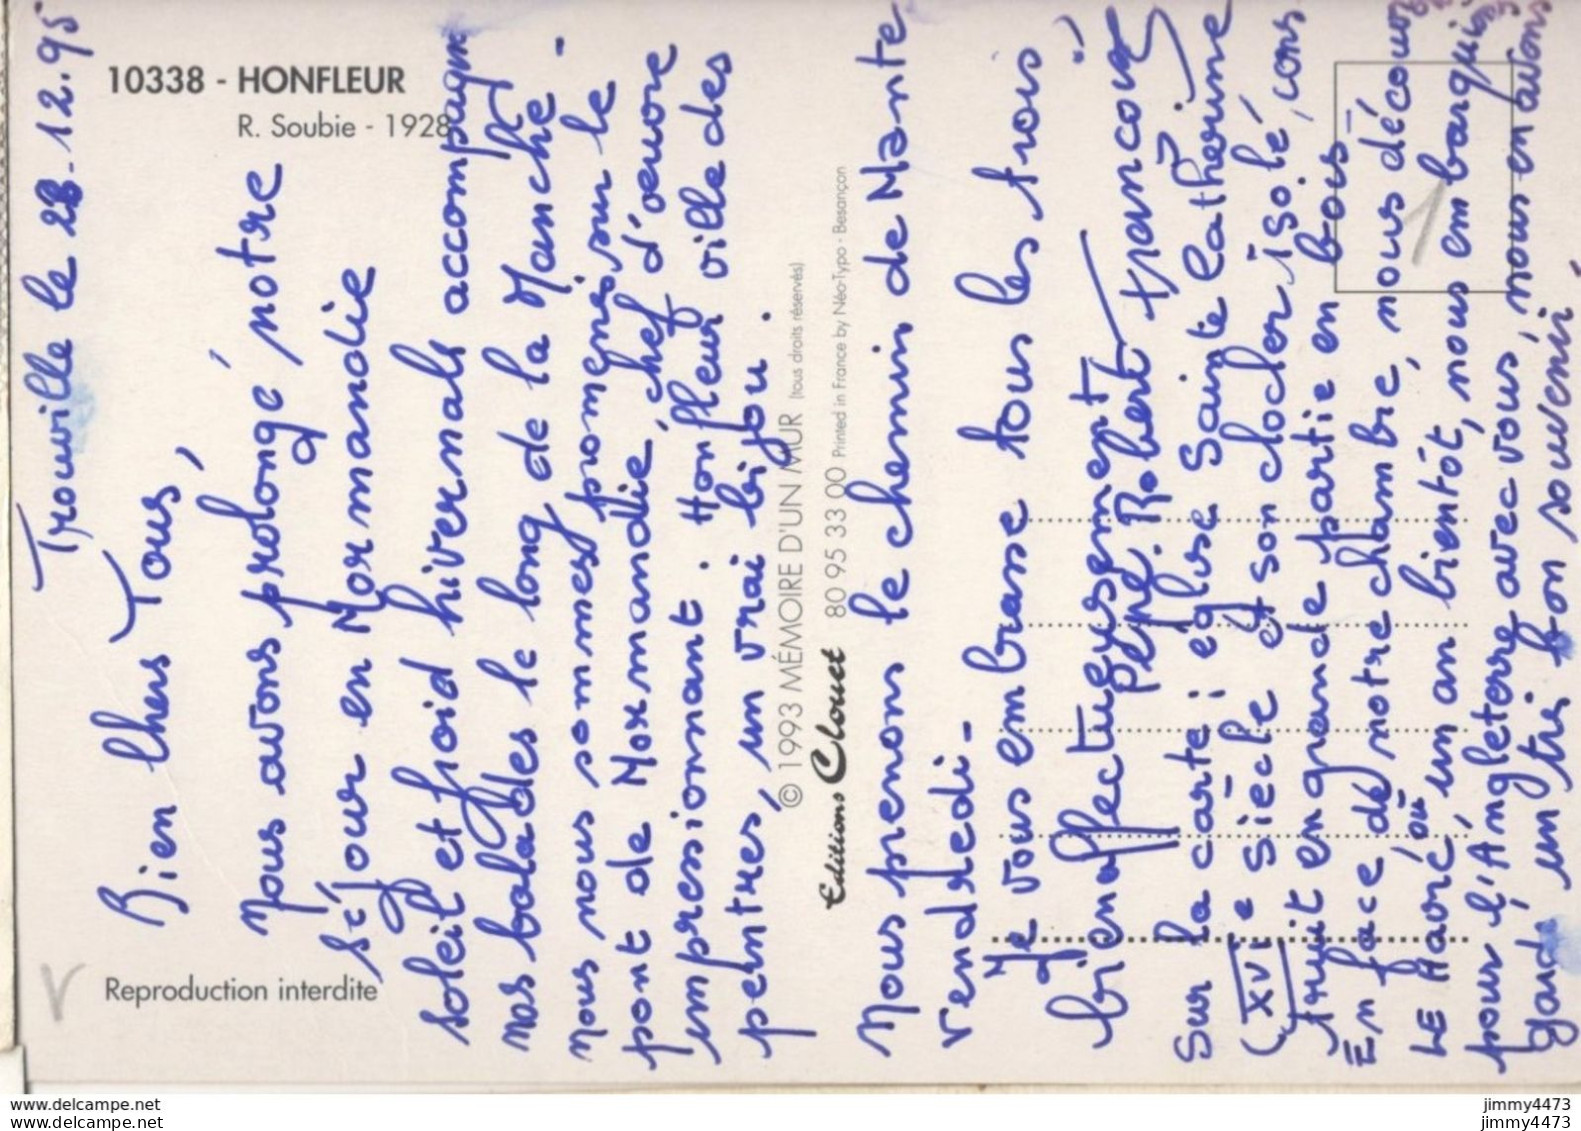 10338 - HONFLEUR
R. Soubie - 1928
Reproduction interdite
© 1993 MÉMOIRE D'UN MUR (tous droits réservés)
Editions Clouet 80 95 33 00 Printed in France by Néo-Typo - Besançon
Trouville le 28.12.95
Bien Chers Tous,
Nous avons prolongé notre
séjour en Normandie
soleil et froid hivernals accompagn
nos balades le long de la Manche -
nous nous sommes promenés sur le
pont de Normandie, chef d'œuvre
impressionnant. Honfleur ville des
peintres, un vrai bijou.
Nous prenons le chemin de Mante
vendredi -
Je vous embrasse tous les trois
bien affectueusement
Pépé. Robert
Sur la carte : église Sainte Catherine
(XVe Siècle et son clocher isolé, cons
truit en grande partie en bois
En face de notre chambre, nous découv
LE Havre où un an bientôt, nous embarquio
pour l'Angleterre avec vous, nous en avons
gardé un très bon souvenir
jimmy4473
www.delcampe.net
jimmy4473
www.delcampe.net